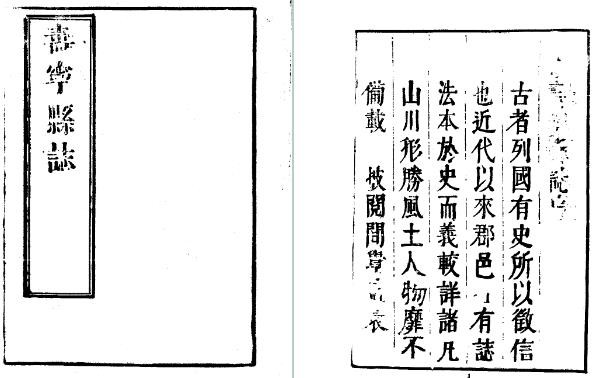 壽寧縣誌
古者列國有史所以徵信
也近代以來郡邑有誌
法本於史而義較詳諸凡
山川形勝風土人物靡不
備載披閱間覺